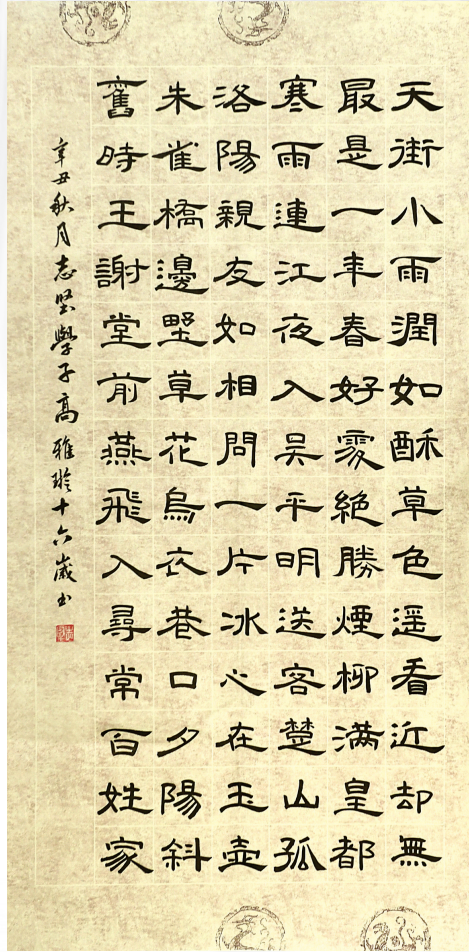 天街小雨潤如酥草色遥看近却無
最是一年春好處絶勝煙柳滿皇都
寒雨連江夜入吴平明送客楚山孤
洛陽親友如相問一片冰心在玉壺
朱雀橋邊野草花烏衣巷口夕陽斜
舊時王謝堂前燕飛入尋常百姓家
辛丑秋月志堅學子高雅玲十六歲書